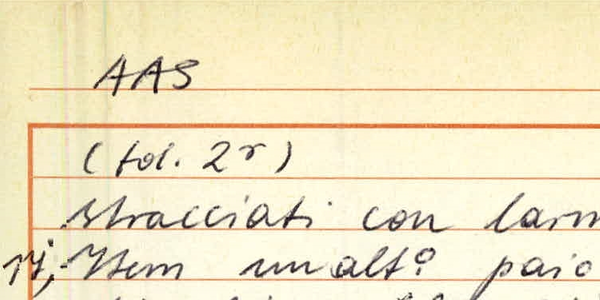 AAS
(fol. 2r)
stracciati con
Item un alt.o paio